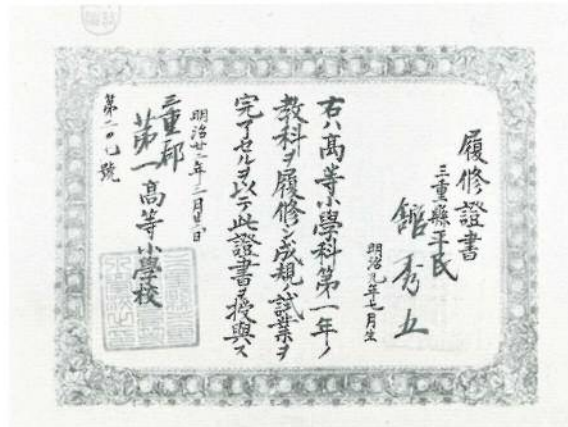 履修證書
三重縣平民
舘秀五
明治九年七月生
右ハ高等小學科第一年ノ
教科ヲ履修シ成規ノ試業ヲ
完了セルヲ以テ此證書ヲ授與ス
明治廿二年三月
三重郡
第一高等小學校
第二〇九號